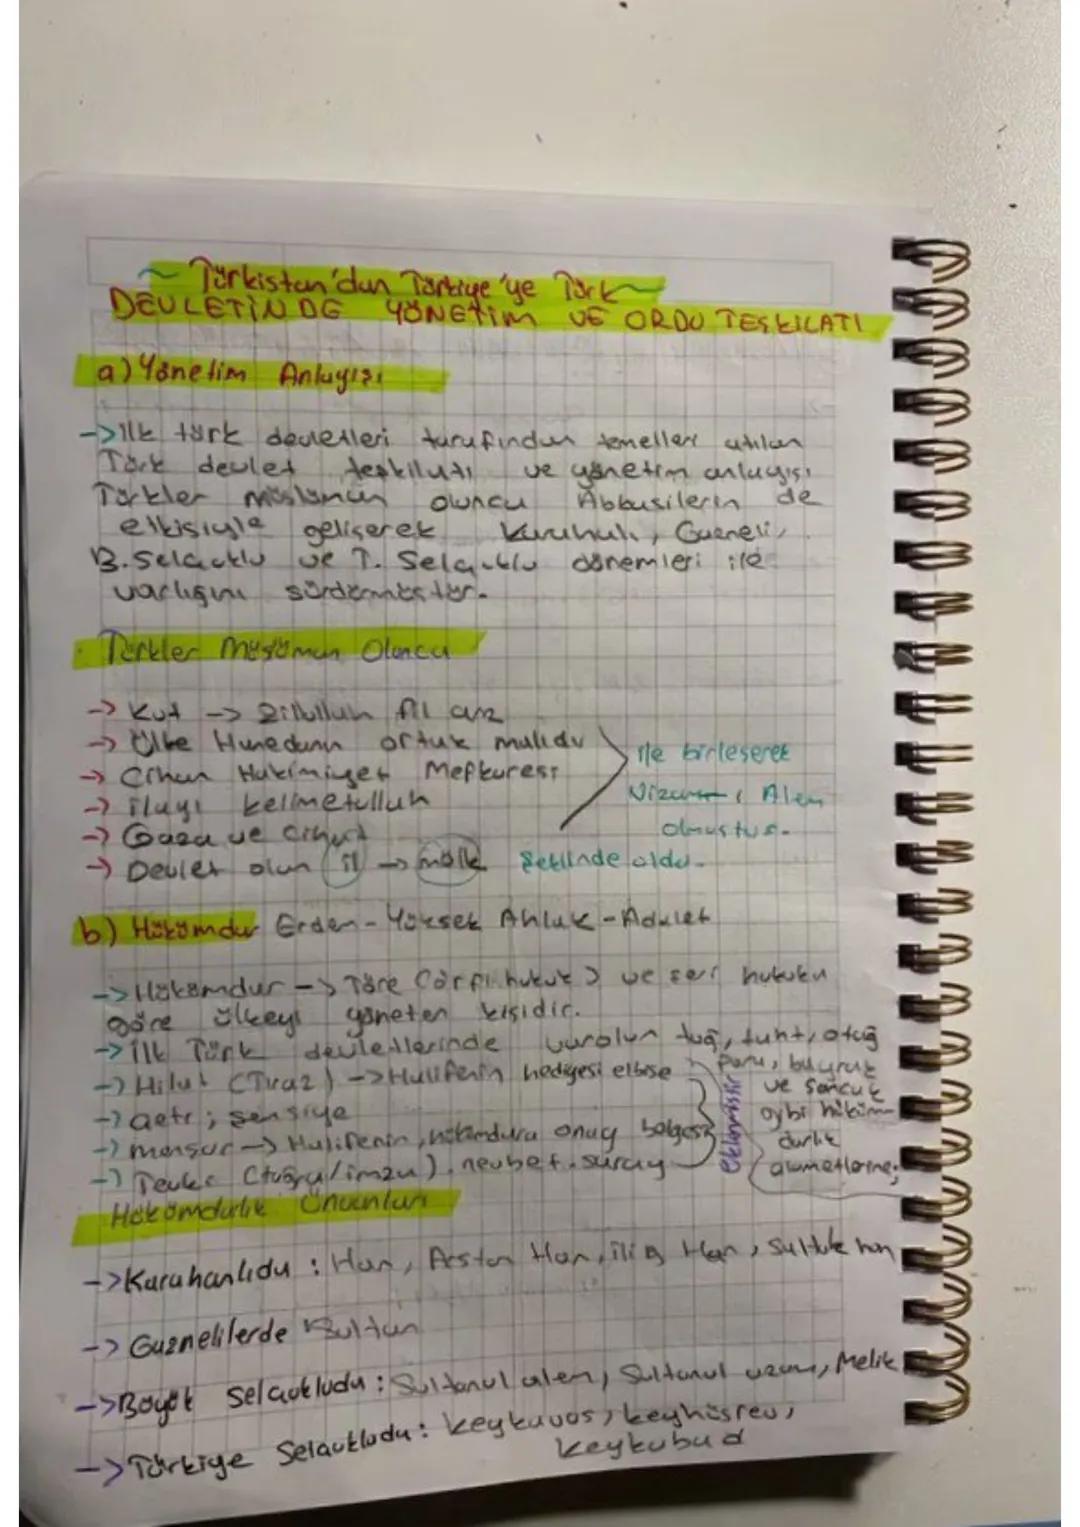 ~ Türkistan'dan Türkiye'ye Türk ~
DEVLETİNDE YÖNETİM VE ORDU TEŞKİLATI
a) Yönetim Anlayışı
-> İlk türk devletleri tarafından temelleri atılan
Türk devlet teşkilatı ve yönetim anlayışı
Türkler müslüman olunca Abbasilerin de
etkisiyle gelişerek Karahanlı, Gazneli,
B. Selçuklu ve T. Selçuklu dönemleri ile
varlığını sürdürmüştür.
Türkler Müslüman Olunca
-> Kut -> Zillullah fil arz
-> Ülke Hanedanın ortak malıdır
-> Cihan Hakimiyet Mefkuresi
-> ilayı kelimetullah
-> Gaza ve Cihat
ile birleşerek
Nizam-ı Alem
olmuştur.
-> Devlet olan il -> mülk şeklinde oldu.
b) Hükümdar Erdem - Yüksek Ahlak - Adalet
-> Hükümdar -> Töre (örfi hukuk) ve şeri hukuka
göre ülkeyi yöneten kişidir.
-> ilk Türk devletlerinde varolan tuğ, taht, otağ
para, buyruk
ve sancak
gibi hüküm-
darlık
alametlerine;
-> Hilat (Tıraz) -> Halifenin hediyesi elbise
-> çetr; şemsiye
-> menşur -> Halifenin, hükümdara onay belgesi
-> Tevki (tuğra/imza). nevbet. saray
eklenmiştir
Hükümdarlık Ünvanları
-> Karahanlıda : Han, Arslan Han, ilig Han, Sultuk han
-> Gaznelilerde Sultan
-> Büyük Selçukluda : Sultanul alem, Sultanul azam, Melik
-> Türkiye Selçukluda : keykavos, keyhüsrev,
keykubad